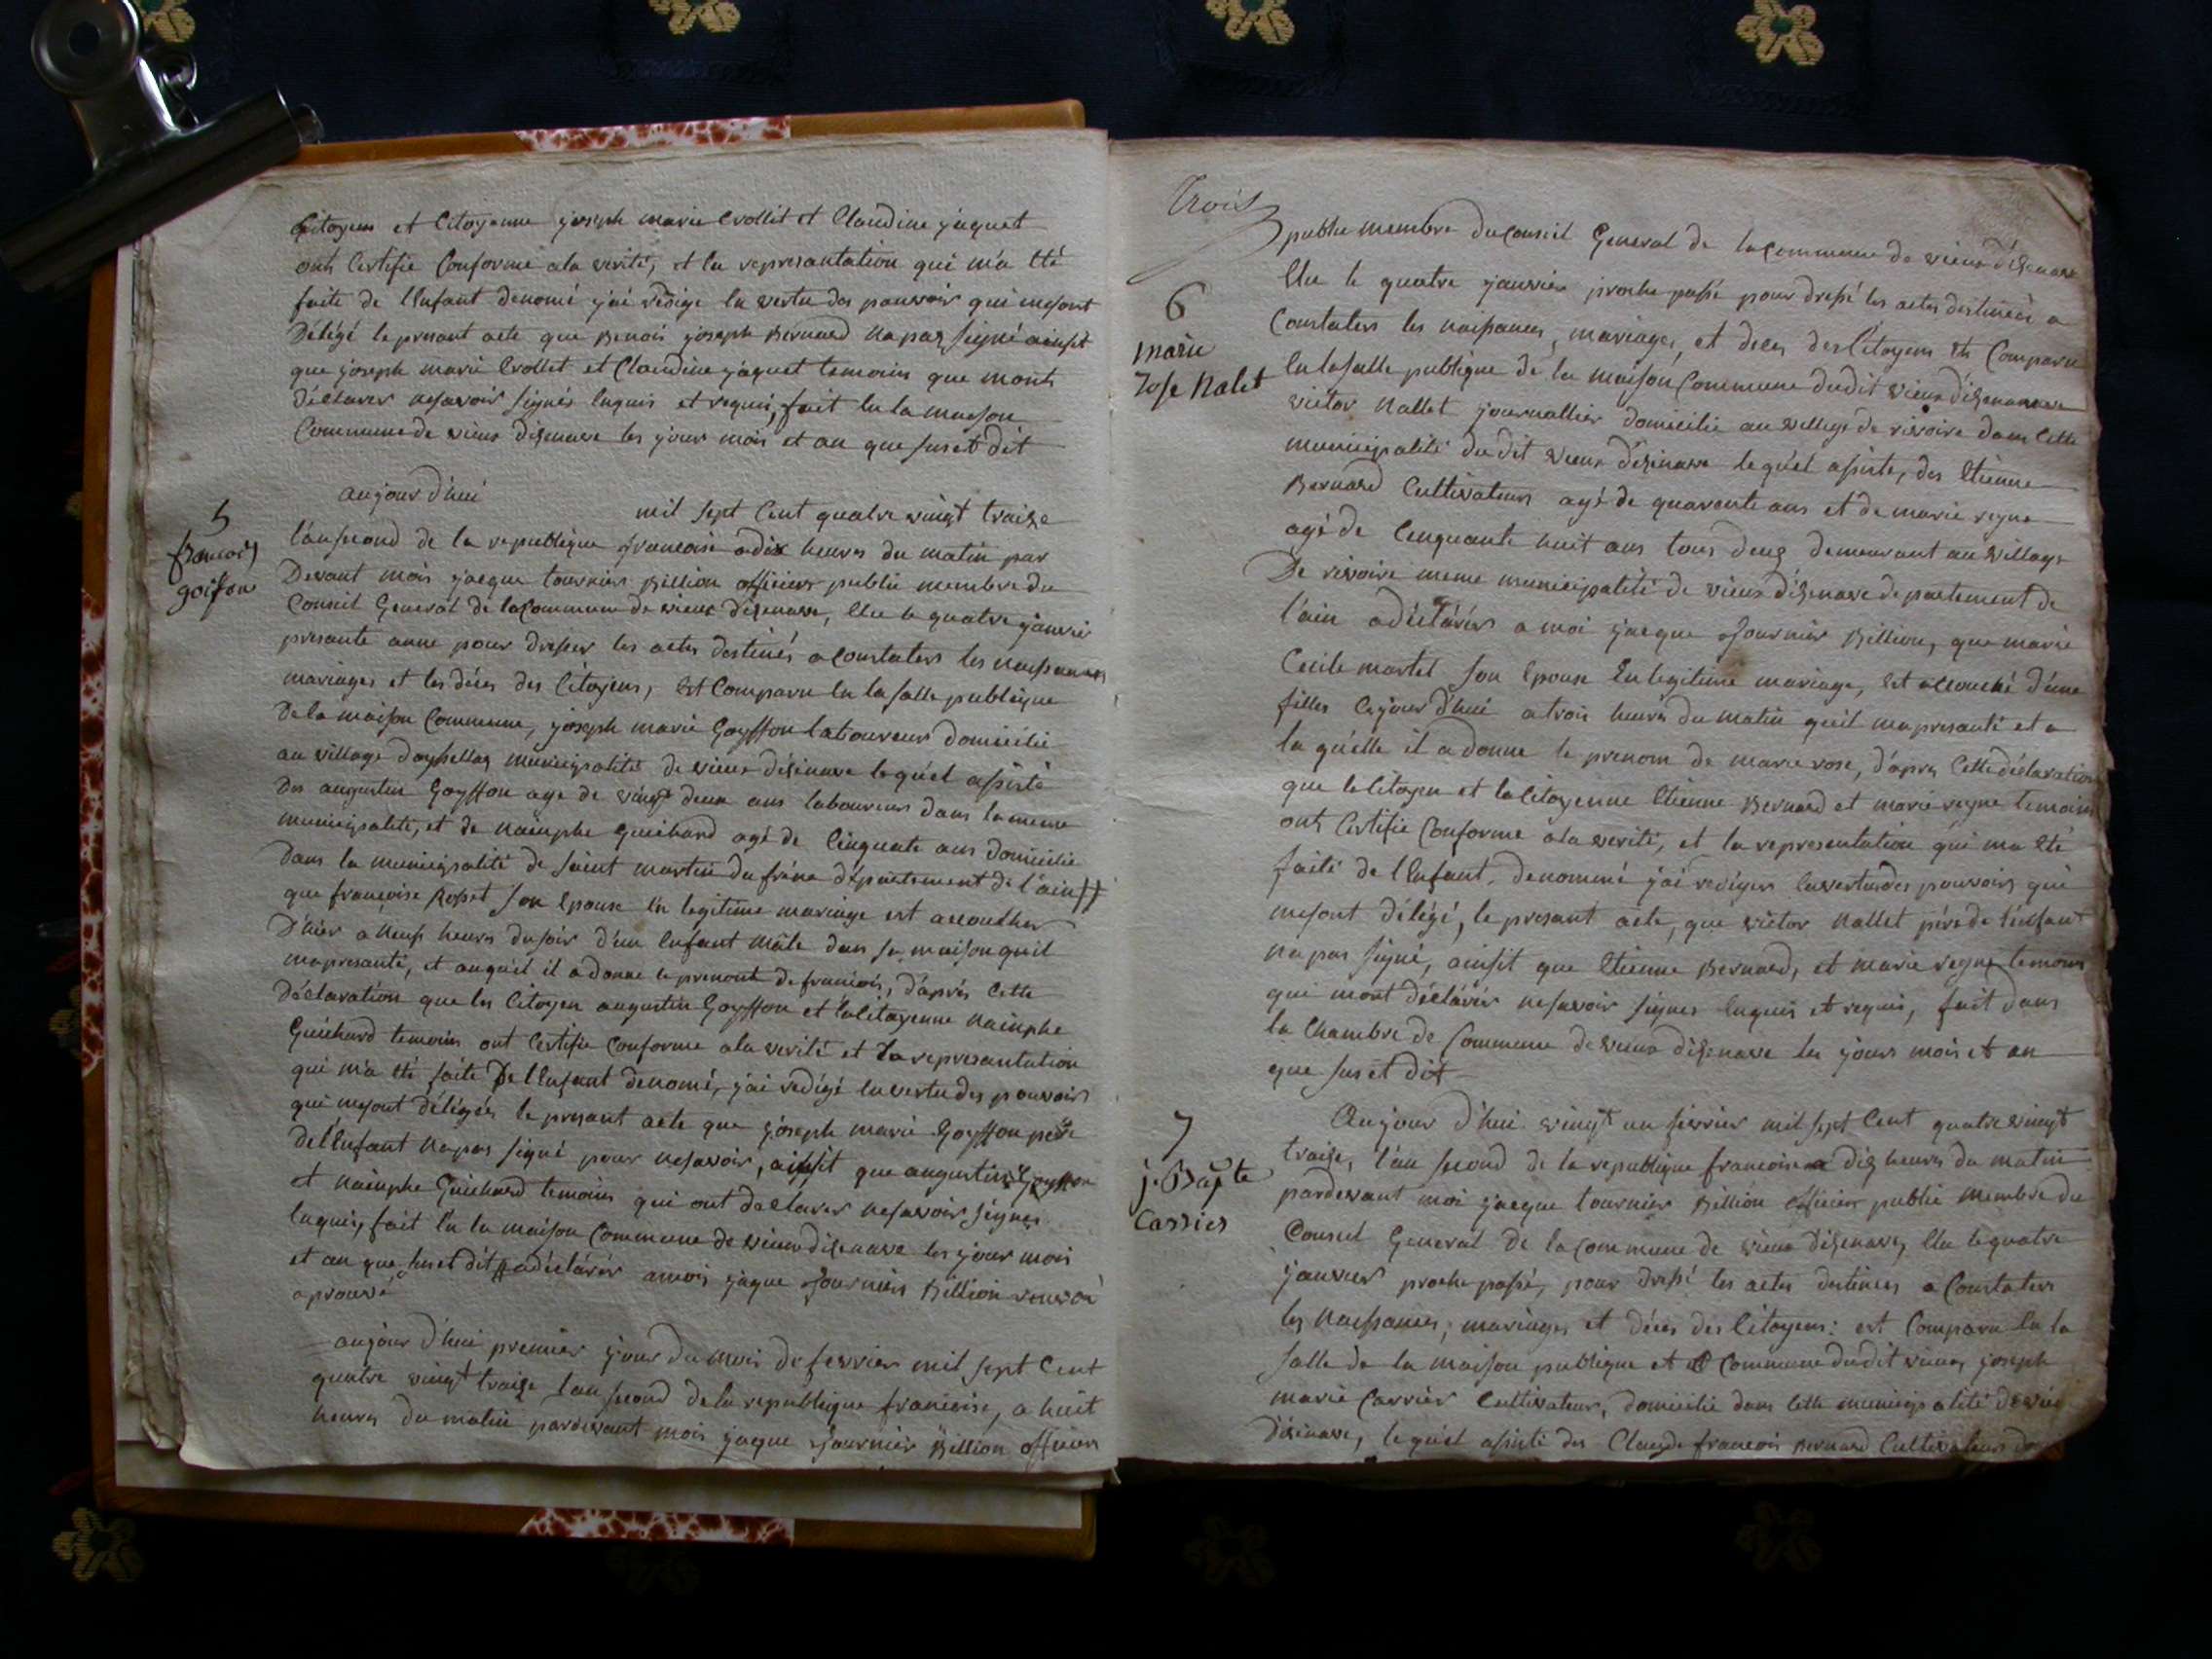 Citoyens et Citoyenne joseph marie Crollet et Claudine jaquet
ont Certifie Conforme a la verité, et la represantation qui m'a été
faite de l'Enfant denomé j'ai rédige En vertu des pouvoir qui me sont
Délégé le presant acte que Benois joseph Bernard na pas signé ainsit
que joseph marie Crollet et Claudine jaquet temoins que m'ont
déclarer ne savoir signés Enquis et requis, fait En la maison
Commune de vieux disenave les jour mois et an que sus et dit
5
francois
goiffon
aujour d'hui mil sept Cent quatre vingt traize
l'an second de la republique francoise a dix heures du matin par
Devant mois jacque tournier Billion officier public membre du
Conseil General de la Commune de vieux disenave, Elu le quatre janvier
presante anne pour dresser les actes destinés a Constaters les naissances
mariages et les déces des Citoyens, Est Comparu En la salle publique
De la maison Commune, joseph marie Goyffon laboureur domicilié
au village municipalité de vieux disenave le quel assisté
Des augustin Goyffon age de vingt deux ans laboureur dans la meme
municipalité, et de nainphe Guichard agé de Cinquate ans domicilie
Dans la municipalité de saint martin du frêne département de l'ain #
que françoise Rosset son Epouse En legitime mariage est accoucher
D'hier a neuf heures du soir d'un Enfant mâle dans sa maison quil
ma presanté, et au quel il a donne le prenont de francois, d'après Cette
Déclaration que les Citoyen augustin Goyffon et la Citoyenne nainphe
Guichard temoins ont Certifie Conforme a la verité et la represantation
qui m'a été faite De l'Enfant denomé, j'ai redigé En vertu des pouvoirs
qui me sont délégés le presant acte que joseph marie Goyffon pere
de l'Enfant na pas signé pour ne savoir, ainsit que augustin Goyffon
et nainphe Guichard temoins qui ont declarer ne savoir signes
Enquis, fait En la maison Commune de vieux disenave les jour mois
et an que sus et dit # a déclárér a mois jaque tournier Billion renvoi
aprouvé
aujour d'hui premier jour du mois de fevrier mil sept Cent
quatre vingt traize l'an second de la republique francoise, a huit
heures du matin pardevant mois jaque tournier Billion officier
Trois
public membre du Conseil General de la Commune de vieux d'isenave
Elu le quatre janvier proche passé pour dressé les actes destinées a
Constaters les naissances, mariages, et deces des Citoyens Est Comparu
6
marie
Rose Nalet
En la salle publique de la maison Commune dudit vieux d'isenave
victor Nallet journallier domicilié au village de rivoire dans Cette
municipalité du dit vieux d'isenave le quel assisté, des Etienne
Bernard Cultivateur agé de quarente ans et de marie reyne
agé de Cinquante huit ans tous deux demeurant au village
De rivoire meme municipalité de vieux d'isenave departement de
l'ain a déclárér a moi jacque tournier Billion, que marie
Cecile martel son Epouse En legitime mariage, Est accouché d'une
filles Ce jour d'hui a trois heures du matin qu'il ma presanté et a
la quélle il a donne le prenom de marie rose, d'apres Cette déclaration
que le Citoyen et la Citoyenne Etienne Bernard et marie reyne temoins
ont Certifie Conforme a la verité, et la representation qui ma été
faite de l'Enfant, denommé j'ai rediger En vertu des pouvoirs qui
me sont délégé, le presant acte, que victor Nallet pére de l'enfant
na pas signé, ainsit que Etienne Bernard, et marie reyne temoins
qui mont déclárér ne savoir signes Enquis et requis, fait dans
la Chambre de Commune de vieux disenave les jours mois et an
que sus et dit
7
j. Bapte
Carrier
Aujour d'hui vingt un fevrier mil sept Cent quatre vingt
traize, l'an second de la republique francoise a dix heures du matin
pardevant moi jacque tournier Billion officier public membre du
Conseil General de la Commune de vieux disenave, Elu le quatre
janvier proche passé, pour dressé les actes destinees a Constaters
les naissances, mariages et déces des Citoyens: est Comparu En la
salle de la maison publique et Commune dudit vieux, joseph
marie Carrier Cultivateur, domicilie dans Cette municipalité de vieux
d'isenave, le quel assisté des Claude francois Bernard Cultivateur